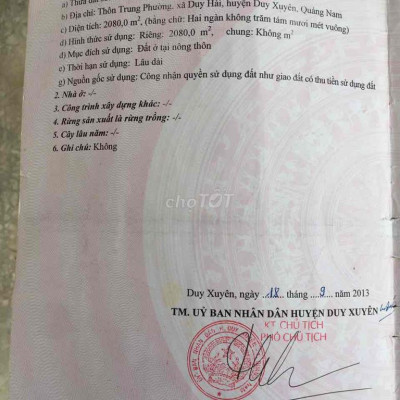 a) Thửa đất
b) Địa chỉ: Thôn Trung Phường, xã Duy Hải, huyện Duy Xuyên, Quảng Nam
c) Diện tích: 2080,0 m², (bằng chữ: Hai ngàn không trăm tám mươi mét vuông)
d) Hình thức sử dụng: Riêng: 2080,0 m², chung: Không m²
đ) Mục đích sử dụng: Đất ở tại nông thôn
e) Thời hạn sử dụng: Lâu dài
g) Nguồn gốc sử dụng: Công nhận quyền sử dụng đất như giao đất có thu tiền sử dụng đất
2. Nhà ở: -/-
3. Công trình xây dựng khác: -/-
4. Rừng sản xuất là rừng trồng: -/-
5. Cây lâu năm: -/-
6. Ghi chú: Không
choTỐT
Duy Xuyên, ngày ..18... tháng ....9... năm 2013
TM. UỶ BAN NHÂN DÂN HUYỆN DUY XUYÊN
KT CHỦ TỊCH
PHÓ CHỦ TỊCH